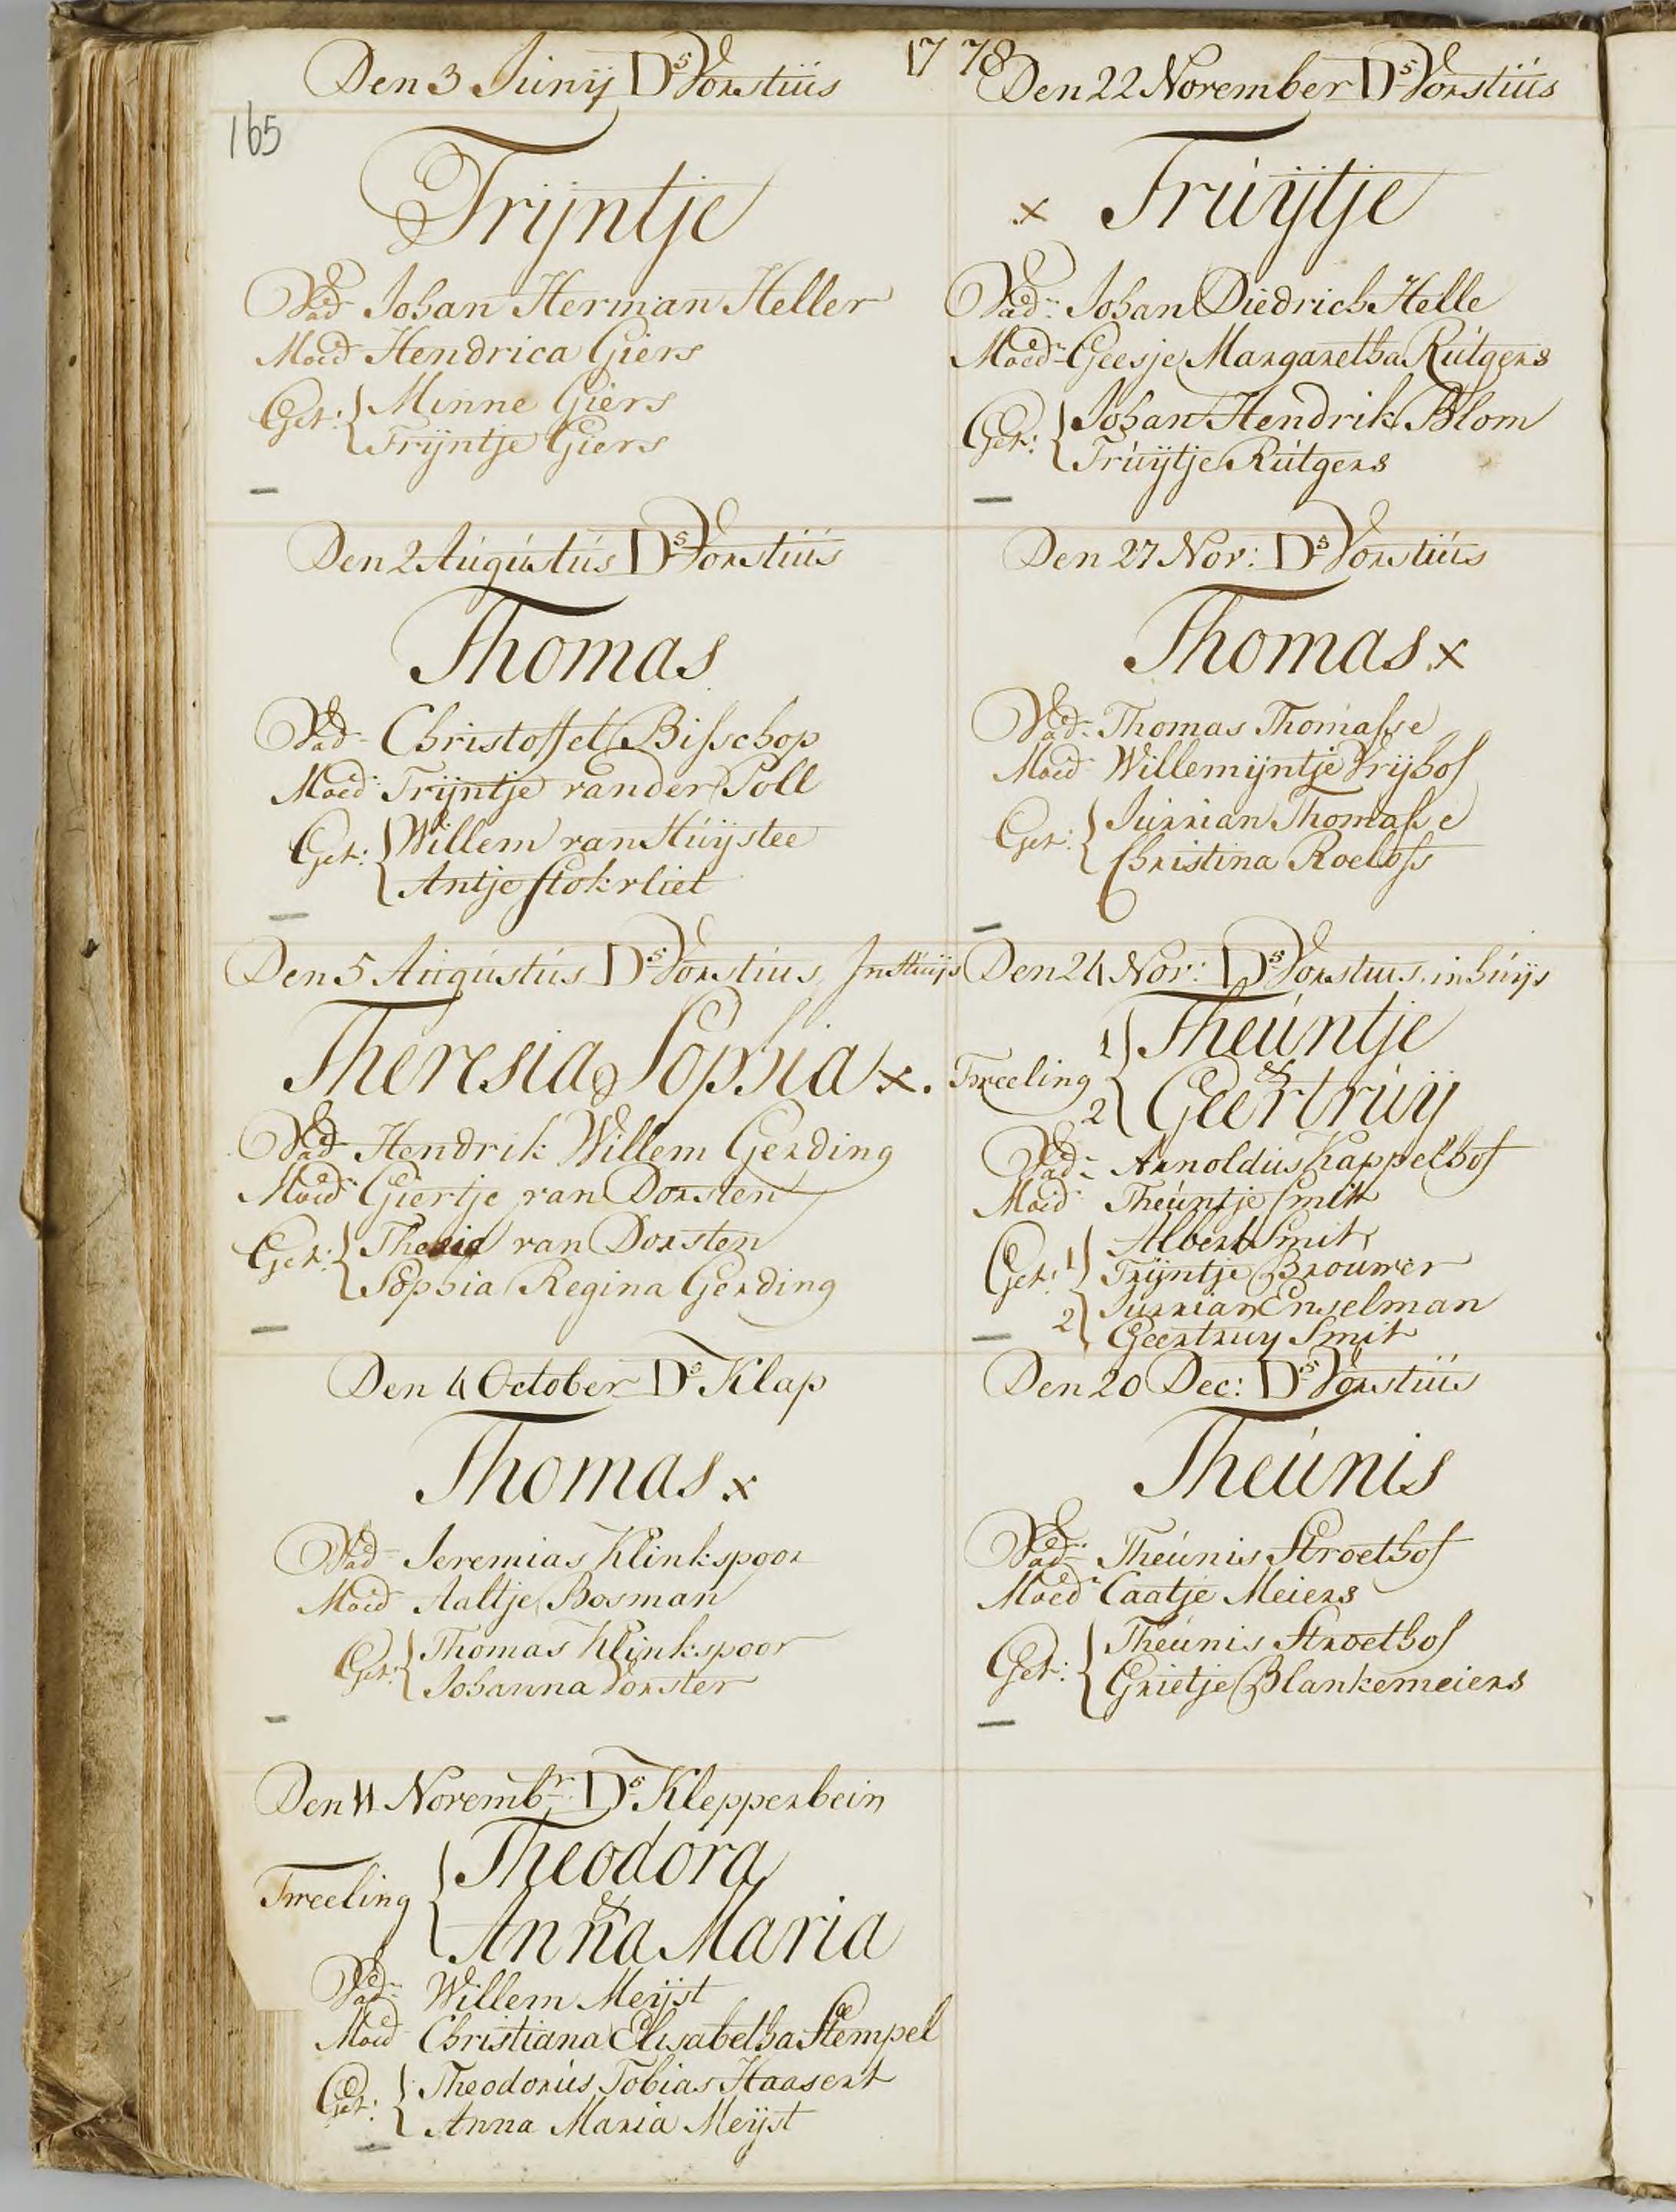 1778
165
Den 3 Junij Ds Vorstius
Trijntje
Vad Johan Herman Heller
Moed Hendrica Giers
Get: Minne Giers
Trijntje Giers
Den 2 Augustus Ds Vorstius
Thomas
Vad Christoffel Bisschop
Moed Trijntje van der Poll
Get: Willem van Huijstee
Antje Stokvliet
Den 5 Augustus Ds Vorstius In Huijs
Theresia Sophia x.
Vad Hendrik Willem Gerding
Moed Giertje van Dorsten
Get: van Dorsten
Sophia Regina Gerding
Den 4 October Ds Klap
Thomas x
Vad Jeremias Klinkspoor
Moed Aaltje Bosman
Get: Thomas Klinkspoor
Johanna Vorster
Den 11 Novembr Ds Klepperbein
Tweeling
Theodora
&
Anna Maria
Vad Willem Meijst
Moed Christiana Elisabetha Stempel
Get: Theodorus Tobias Haasert
Anna Maria Meijst
Den 22 November Ds Vorstius
x Truijtje
Vad Johan Diedrich Helle
Moed Geesje Margaretha Rutgers
Get: Johan Hendrik Blom
Truijtje Rutgers
Den 27 Nov: Ds Vorstius
Thomas x
Vad Thomas Thomasse
Moed Willemijntje Vrijhof
Get: Jurrian Thomasse
Christina Roelofs
Den 24 Nov: Ds Vorstius in huijs
Tweeling
1 Theuntje
&
2 Geertruij
Vad Arnoldus Kappelhof
Moed Theuntje Smitt
Get: 1 Albert Smit
Trijntje Brouwer
2 Jurrian Enselman
Geertruy Smit
Den 20 Dec: Ds Vorstius
Theunis
Vad Theunis Stroethof
Moed Caatje Meiers
Get: Theunis Stroethof
Grietje Blankemeiers